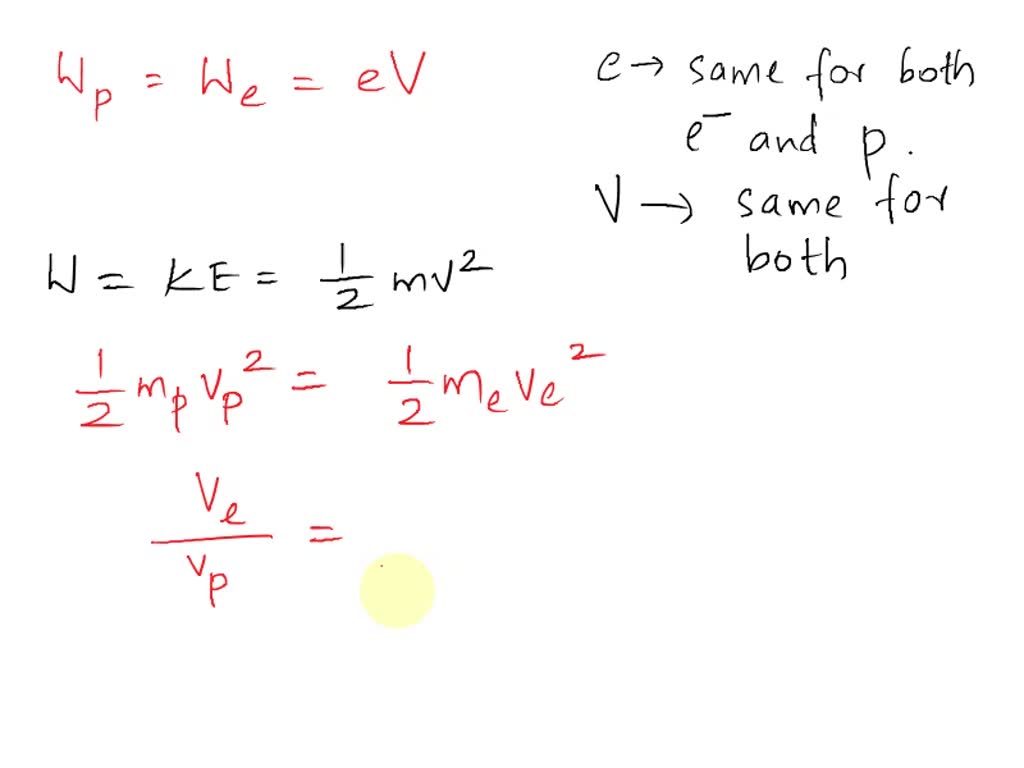 W_p = W_e = eV
e → same for both
e⁻ and p.
V → same for
both
W = KE = 1/2 mv²
1/2 m_p v_p² = 1/2 m_e v_e²
V_e / v_p =